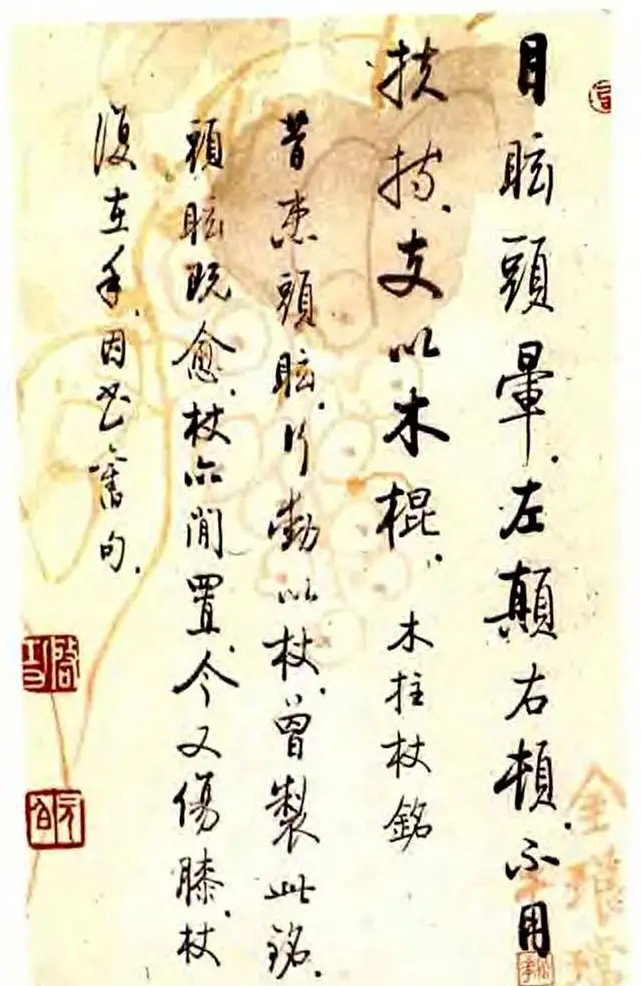 目眩頭暈.左顛右頓.不用
扶持.支以木棍.木拄杖銘
昔患頭眩.行動以杖.曾製此銘.
頭眩既愈.杖亦閒置.今又傷膝.杖
復在手.因書舊句.